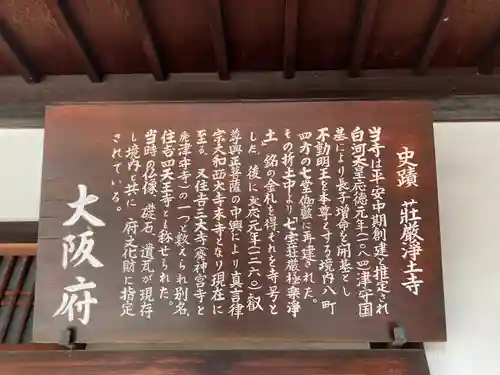 史蹟 荘厳浄土寺
当寺は平安中期創建と推定され
白河天皇応徳元年(一〇八四)津守国
基により長子増命を開基とし
不動明王を本尊とする境内八町
四方の七堂伽藍に再建された。
その折土中より七宝荘厳極楽浄
土 銘の金札を得たのを寺号と
した。後に文応元年(一二六〇)叡
尊興正菩薩の中興により真言律
宗大和西大寺末寺となり現在に
至る。又住吉三大寺(葵神宮寺と
津守寺)の一つと数えられ別名、
住吉四天王寺とも称せられた。
当時の仏像、礎石、遺瓦が現存
し境内と共に 府文化財に指定
されている。
大阪府